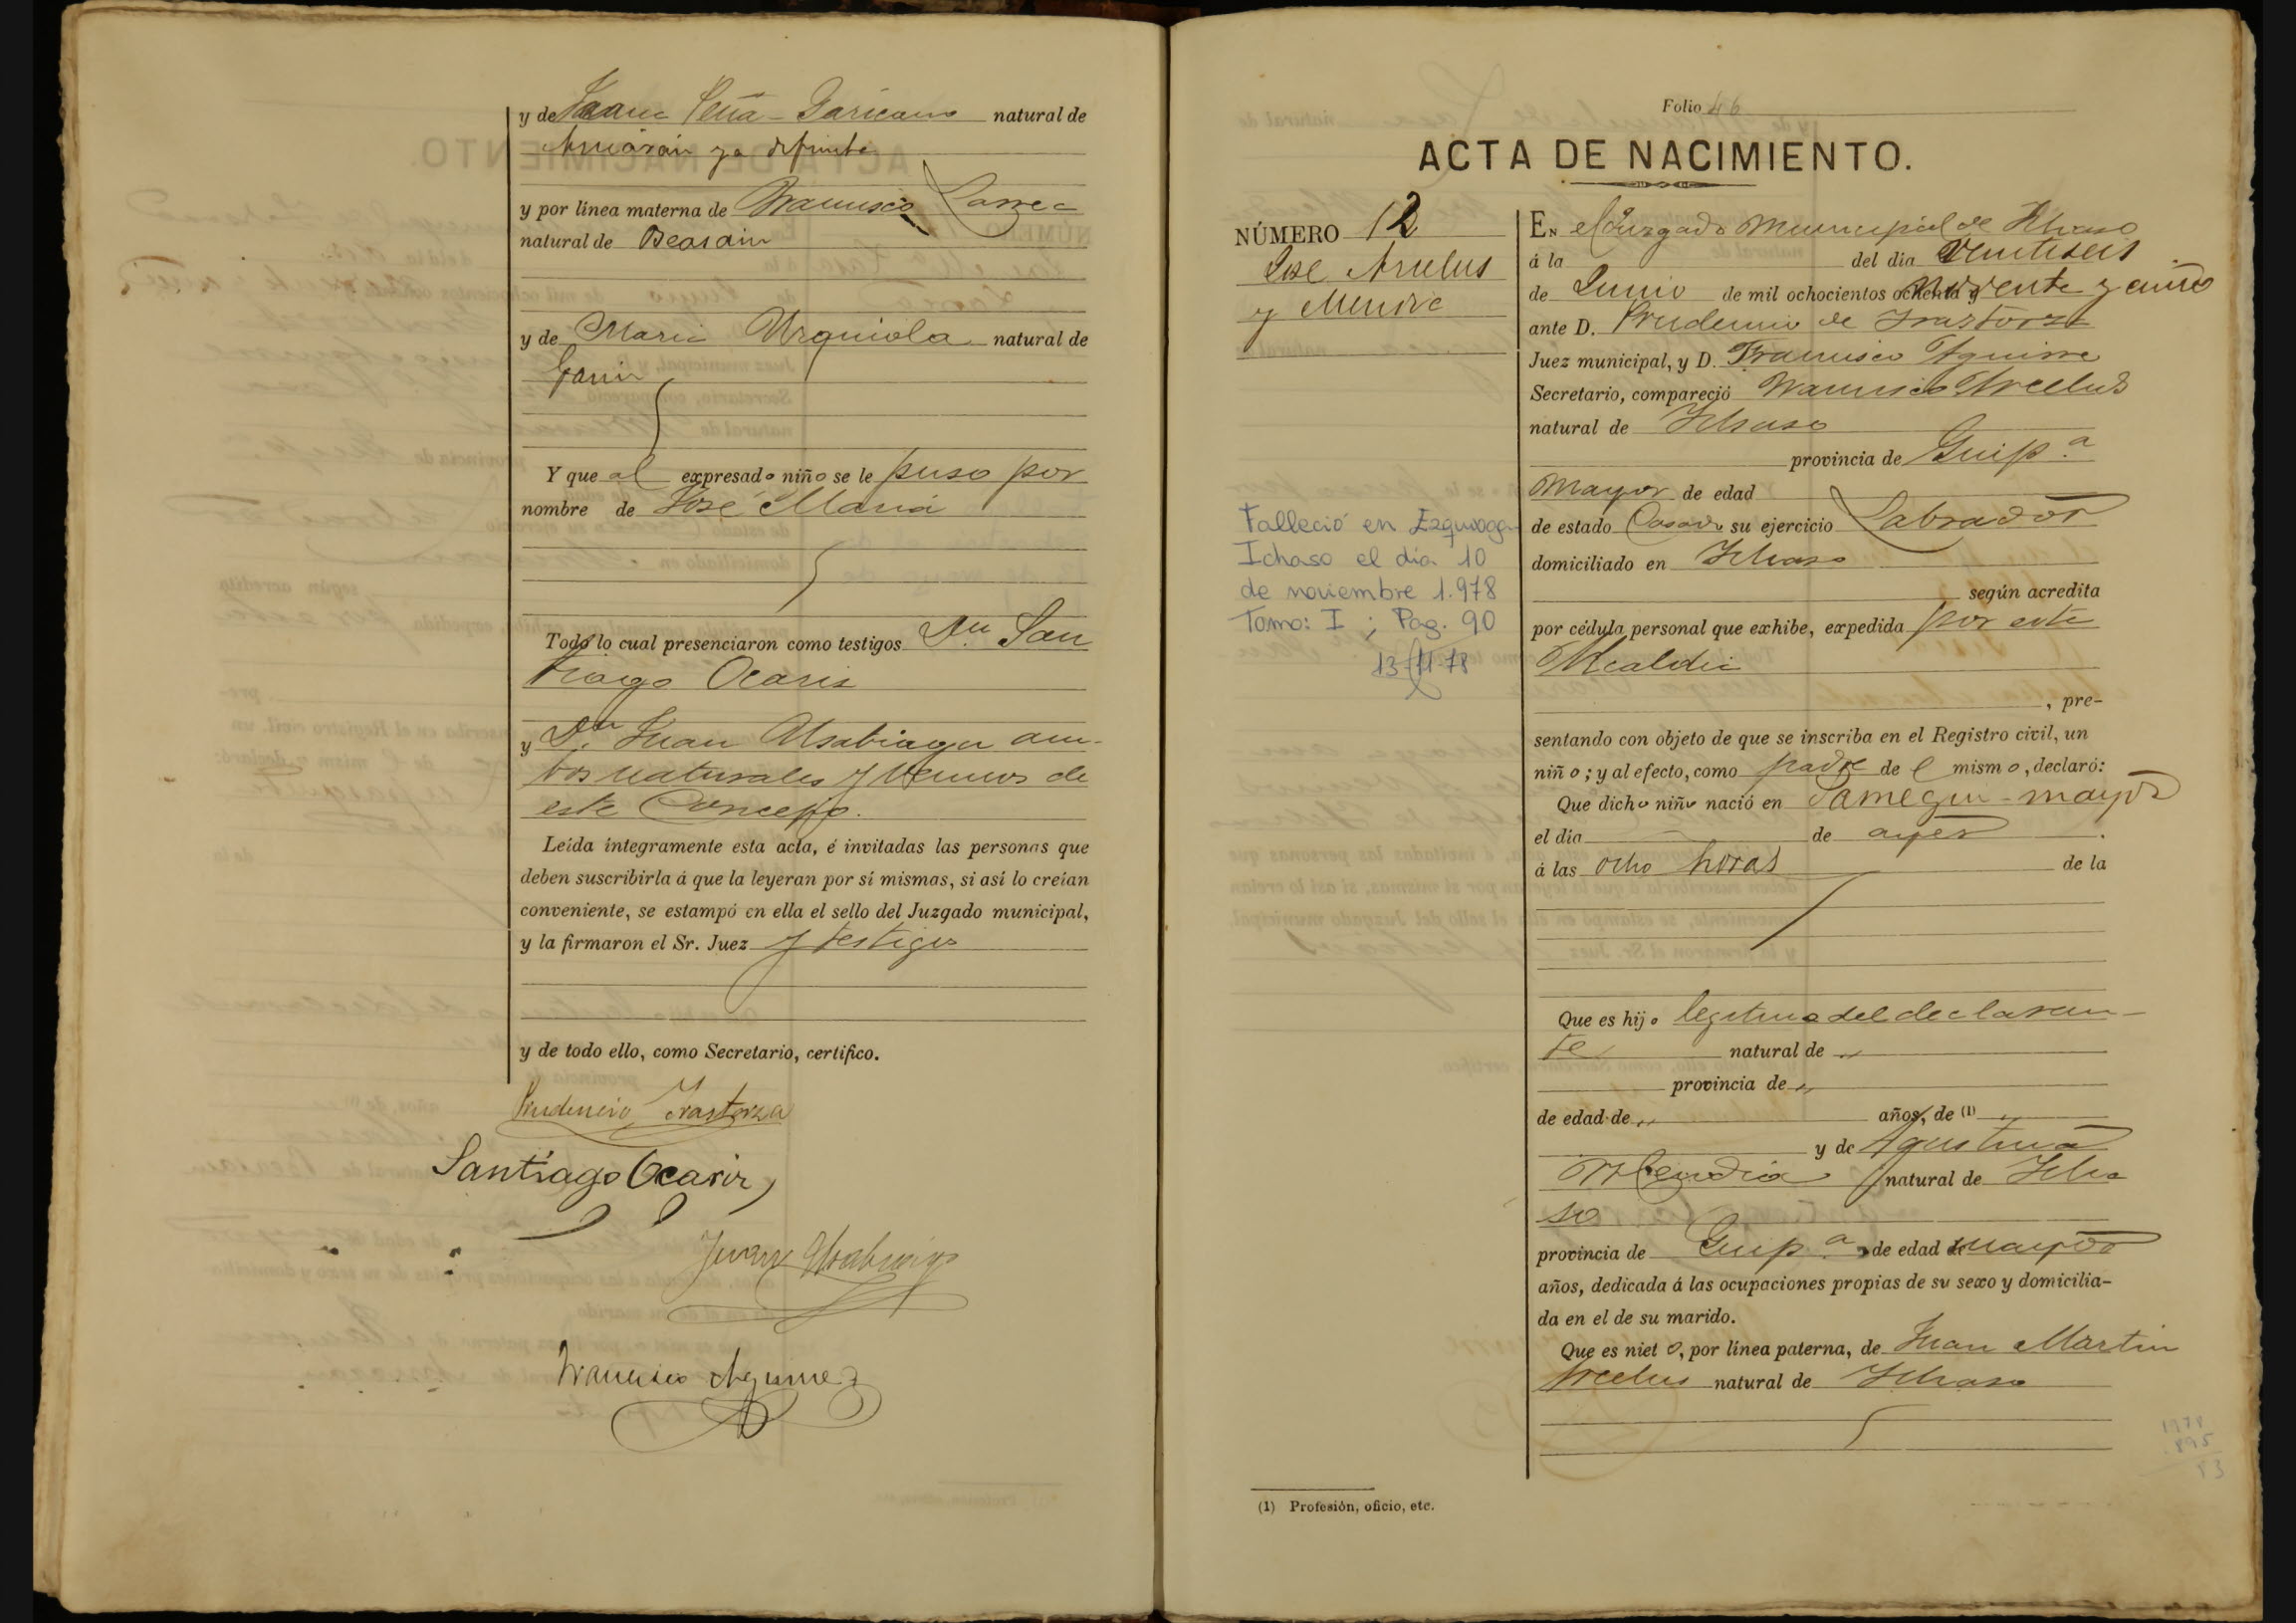 y de Juana Peña-Garicano natural de
Arriarán ya difunta
y por línea materna de Francisco Larrea
natural de Beasain
y de Maria Urquiola natural de
Gavir
Y que al expresado niño se le puso por
nombre de José Maria
Todo lo cual presenciaron como testigos Dn. San
tiago Ocariz
y Dn. Juan Alsabiaga am-
bos naturales y vecinos de
este Concejo.
Leída íntegramente esta acta, é invitadas las personas que
deben suscribirla á que la leyeran por sí mismas, si así lo creían
conveniente, se estampó en ella el sello del Juzgado municipal,
y la firmaron el Sr. Juez y testigos
y de todo ello, como Secretario, certifico.
Prudencio Irastorza
Santiago Ocariz
Juan Alsabiaga
Francisco Aguirre
Folio 46
ACTA DE NACIMIENTO.
NÚMERO 12
José Arcelus
y Mendia
Falleció en Ezquioga
Ichaso el día 10
de noviembre 1.978
Tomo: I ; Pág. 90
13-11-78
En el Juzgado municipal de Ichaso
á la del dia veintiseis
de Junio de mil ochocientos ochenta y noventa y cinco
ante D. Prudencio de Irastorza
Juez municipal, y D. Francisco Aguirre
Secretario, compareció Francisco Arcelus
natural de Ichaso
provincia de Guip.a
mayor de edad
de estado Casado su ejercicio Labrador
domiciliado en Ichaso
según acredita
por cédula personal que exhibe, expedida por esta
Alcaldia
, pre-
sentando con objeto de que se inscriba en el Registro civil, un
niño; y al efecto, como padre de el mismo, declaró:
Que dicho niño nació en mayor
el día de ayer
á las ocho horas de la
Que es hijo legitimo del declaran-
te natural de "
provincia de "
de edad de " años, de (1) "
y de Agustina
Mendia natural de Icha
so
provincia de Guip.a de edad de mayor
años, dedicada á las ocupaciones propias de su sexo y domicilia-
da en el de su marido.
Que es nieto, por línea paterna, de Juan Martin
Arcelus natural de Ichaso
1978
895
83
(1) Profesión, oficio, etc.